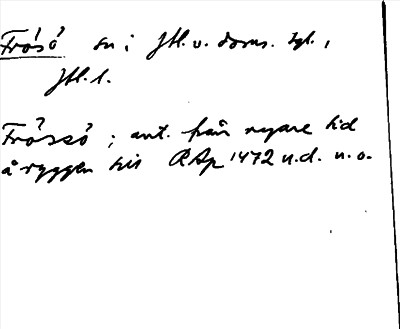 Frösö sn i Jtl. v. doms. tgl.,
Jtl. l.
Frössö ; ant. från nyare tid
å ryggen till RAp 1472 u.d. n. o.